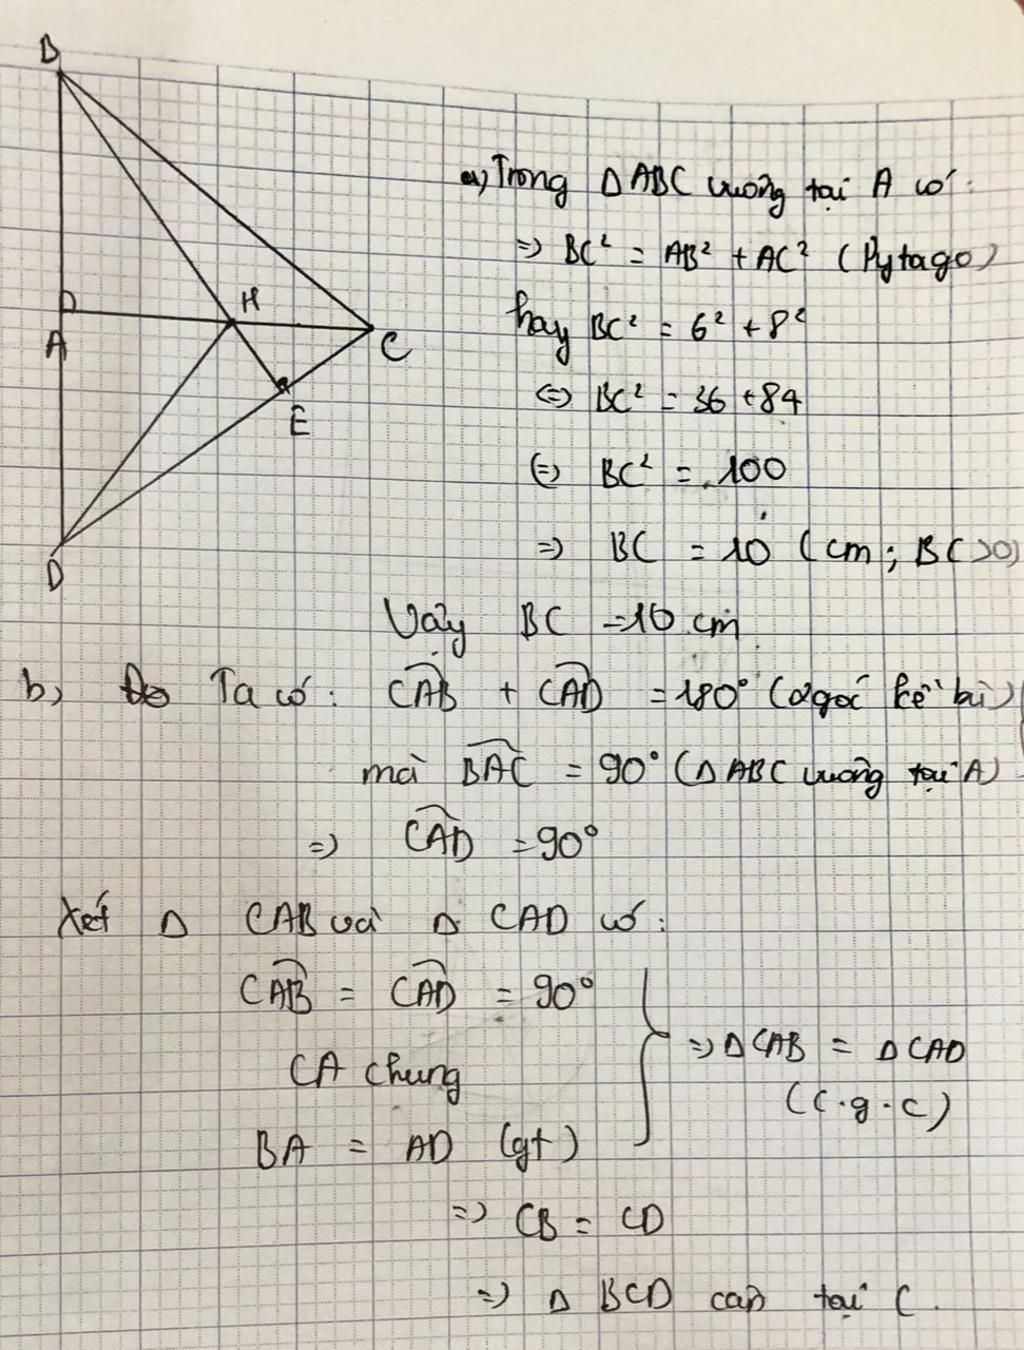 B
H
A
C
E
D
a) Trong Δ ABC vuông tại A có:
=> BC² = AB² + AC² (Pytago)
hay BC² = 6² + 8²
<=> BC² = 36 + 84
<=> BC² = 100
=> BC = 10 (cm; BC>0)
Vậy BC = 10 cm
b) Ta có: CAB + CAD = 180° (2 góc kề bù)
mà BAC = 90° (Δ ABC vuông tại A)
=> CAD = 90°
Xét Δ CAB và Δ CAD có:
CAB = CAD = 90°
CA chung
BA = AD (gt)
=> Δ CAB = Δ CAD
(c.g.c)
=> CB = CD
=> Δ BCD cân tại C.